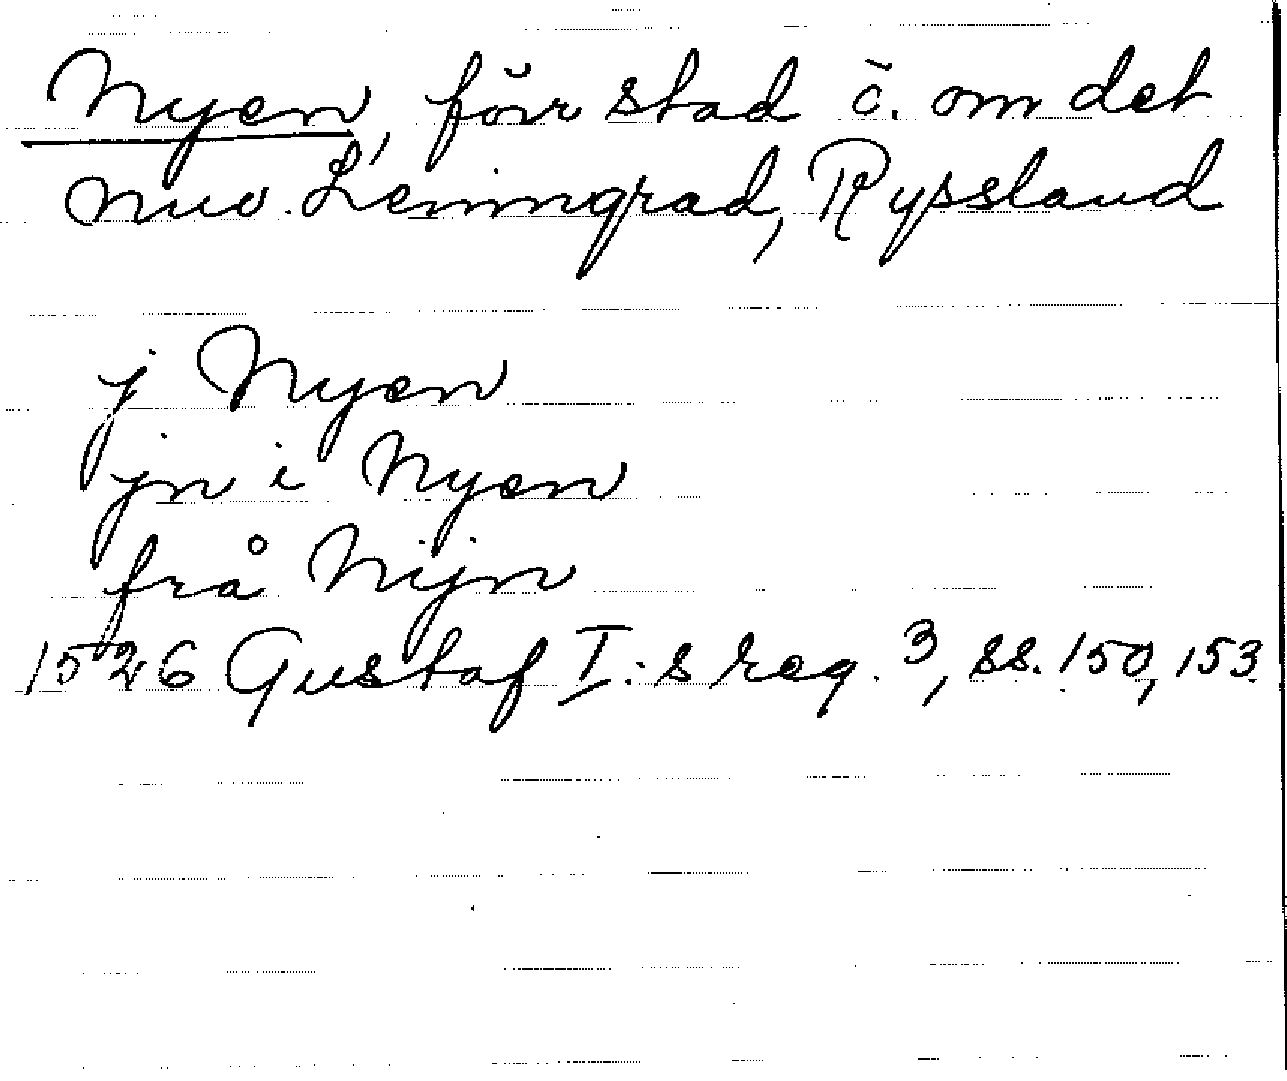 Nyen, förr stad ö. om det
nuv. Leningrad, Ryssland
j Nyen
jn i Nyen
frå Nijn
1526 Gustaf I:s reg. 3, ss. 150, 153